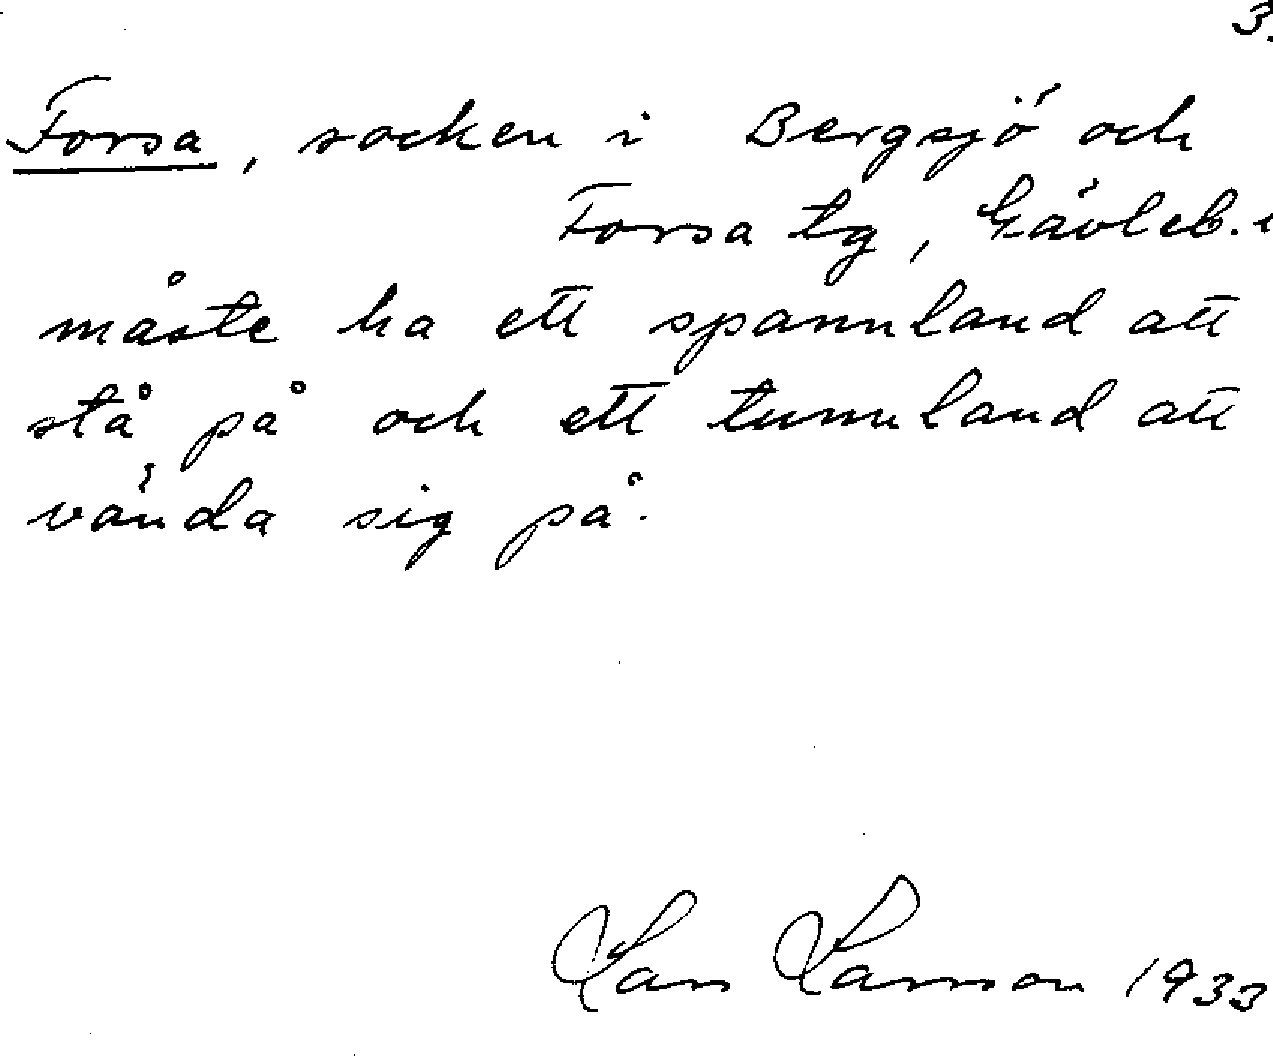 3.
Forsa, socken i Bergsjö och
Forsa tg, Gävleb.
måste ha ett spannland att
stå på och ett tunnland att
vända sig på.
Lars Larsson 1933